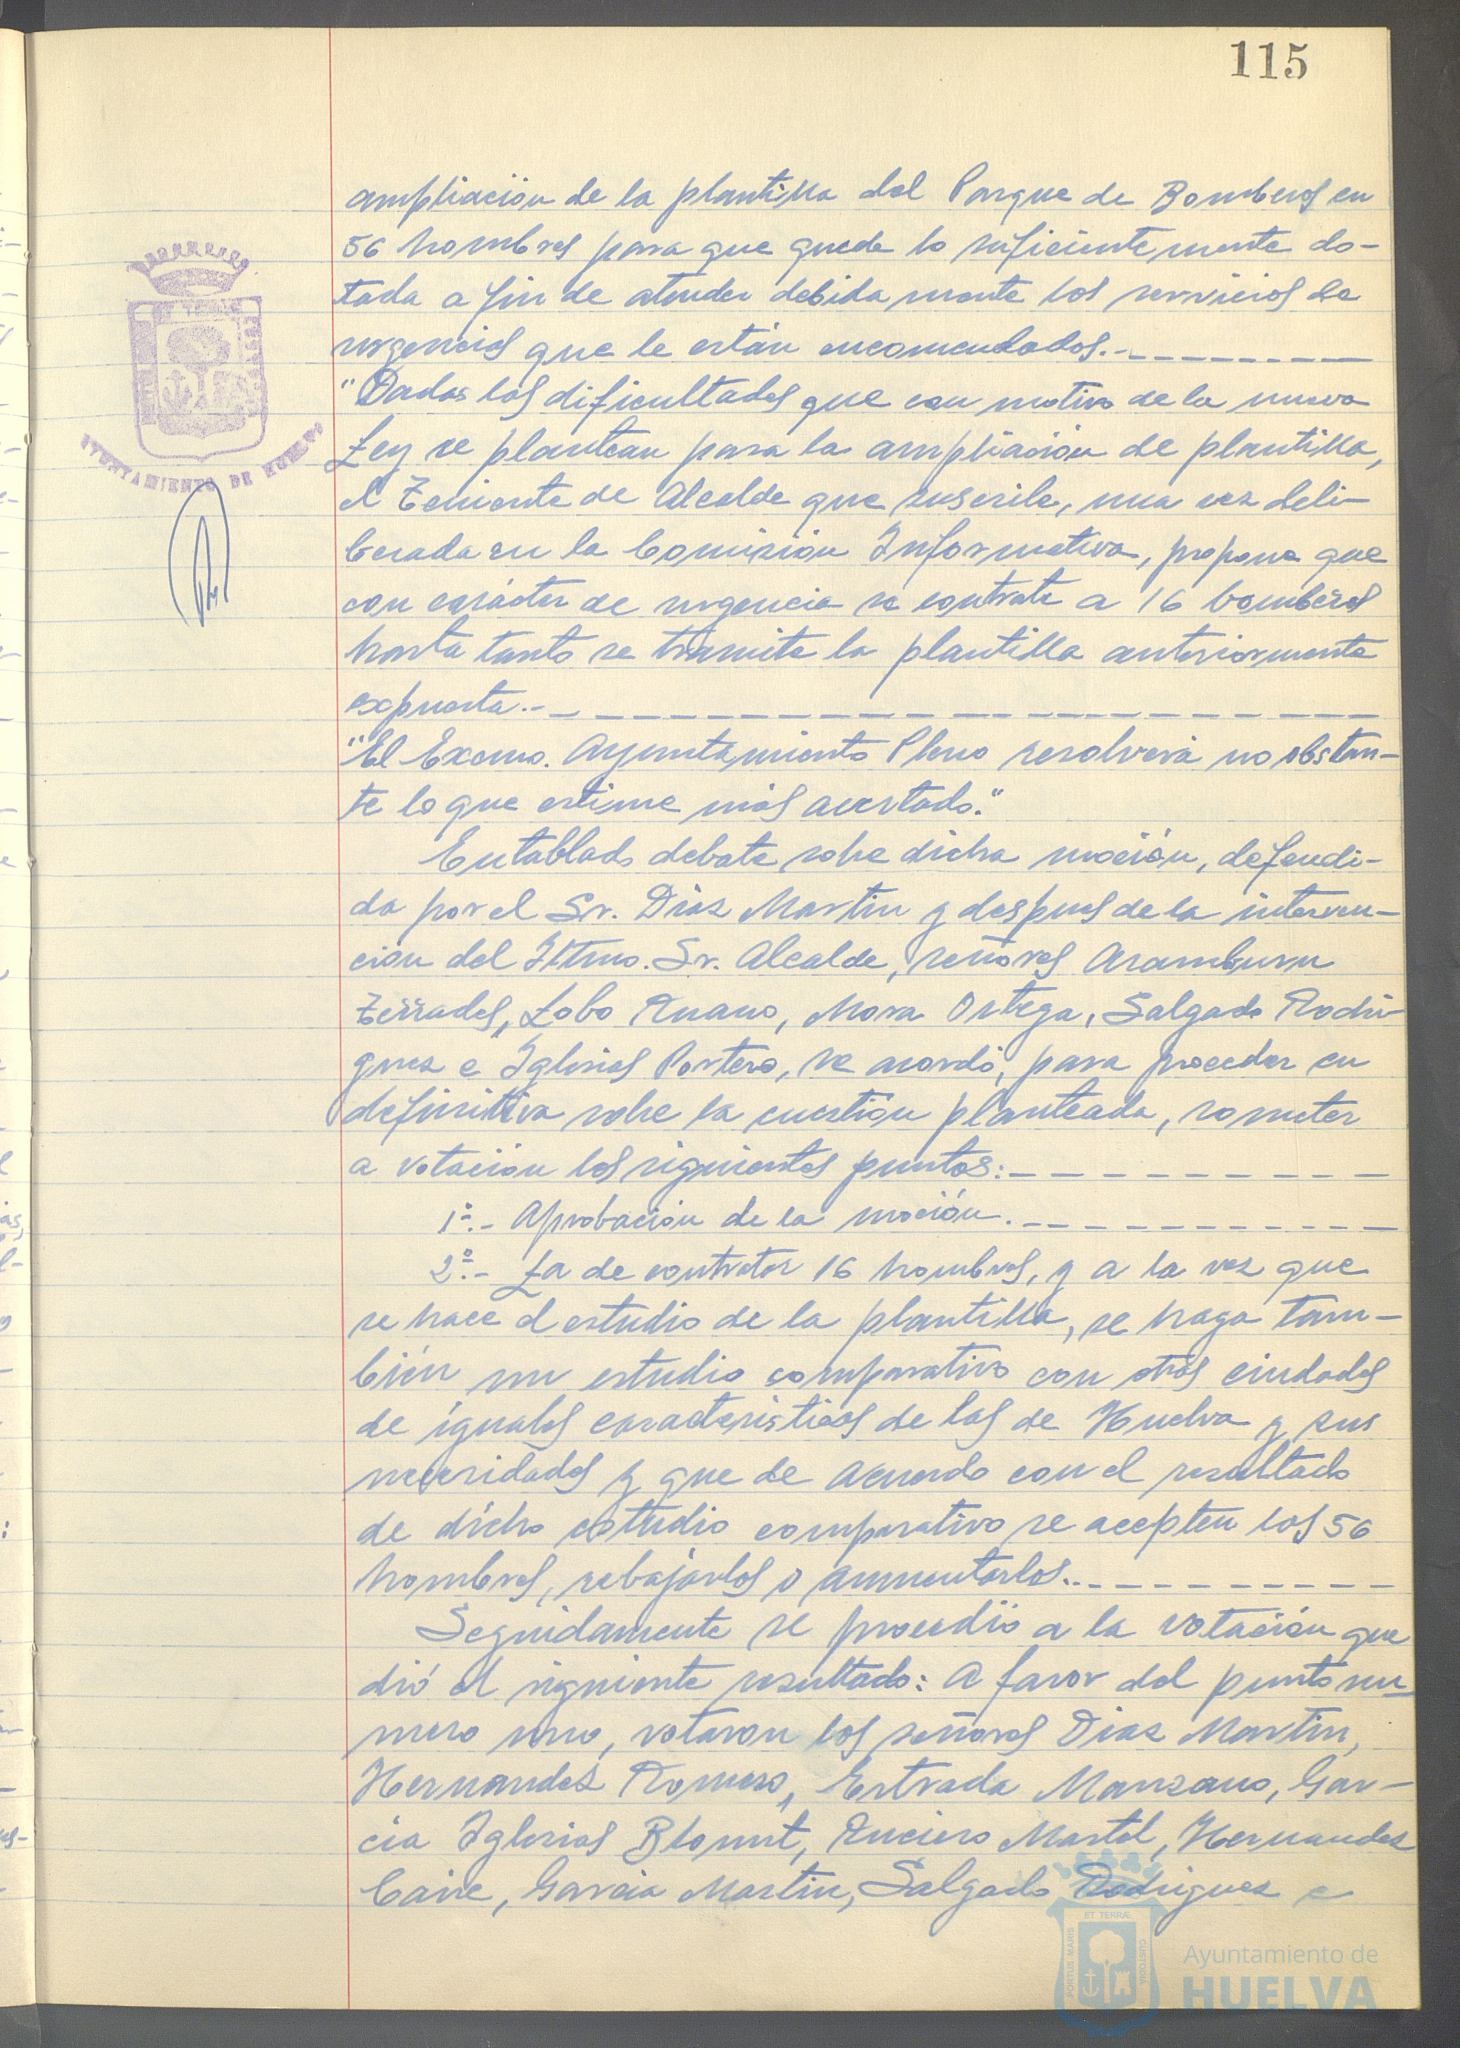 115
ampliación de la plantilla del Parque de Bomberos en
56 hombres para que quede lo suficientemente do-
tada a fin de atender debidamente los servicios de
urgencias que le están encomendados.-
"Dadas las dificultades que con motivo de la nueva
Ley se plantean para la ampliación de plantilla,
el Teniente de Alcalde que suscribe, una vez deli-
berada en la Comisión Informativa, propone que
con carácter de urgencia se contrate a 16 bomberos
hasta tanto se tramite la plantilla anteriormente
expuesta.-
"El Excmo. Ayuntamiento Pleno resolverá no obstan-
te lo que estime más acertado."
Entablado debate sobre dicha moción, defendi-
da por el Sr. Díaz Martín y después de la interven-
ción del Iltmo. Sr. Alcalde, señores Aramburu
Terrades, Lobo Ruano, Mora Ortega, Salgado Rodrí-
guez e Iglesias Portero, se acordó, para proceder en
definitiva sobre la cuestión planteada, someter
a votación los siguientes puntos:-
1º.- Aprobación de la moción.-
2º.- La de contratar 16 hombres, y a la vez que
se hace el estudio de la plantilla, se haga tam-
bién un estudio comparativo con otras ciudades
de iguales características de las de Huelva y sus
necesidades y que de acuerdo con el resultado
de dicho estudio comparativo se acepten los 56
hombres, rebajarlos o aumentarlos.-
Seguidamente se procedió a la votación que
dió el siguiente resultado: A favor del punto nu-
mero uno, votaron los señores Díaz Martín,
Hernandez Romero, Estrada Manzano, Gar-
cía Iglesias Blount, Ruciero Martel, Hernandez
Caire, García Martín, Salgado Rodriguez e
ET TERRÆ
AYUNTAMIENTO DE HUELVA
PORTUS MARIS
ET TERRÆ
CUSTODIA
Ayuntamiento de
HUELVA